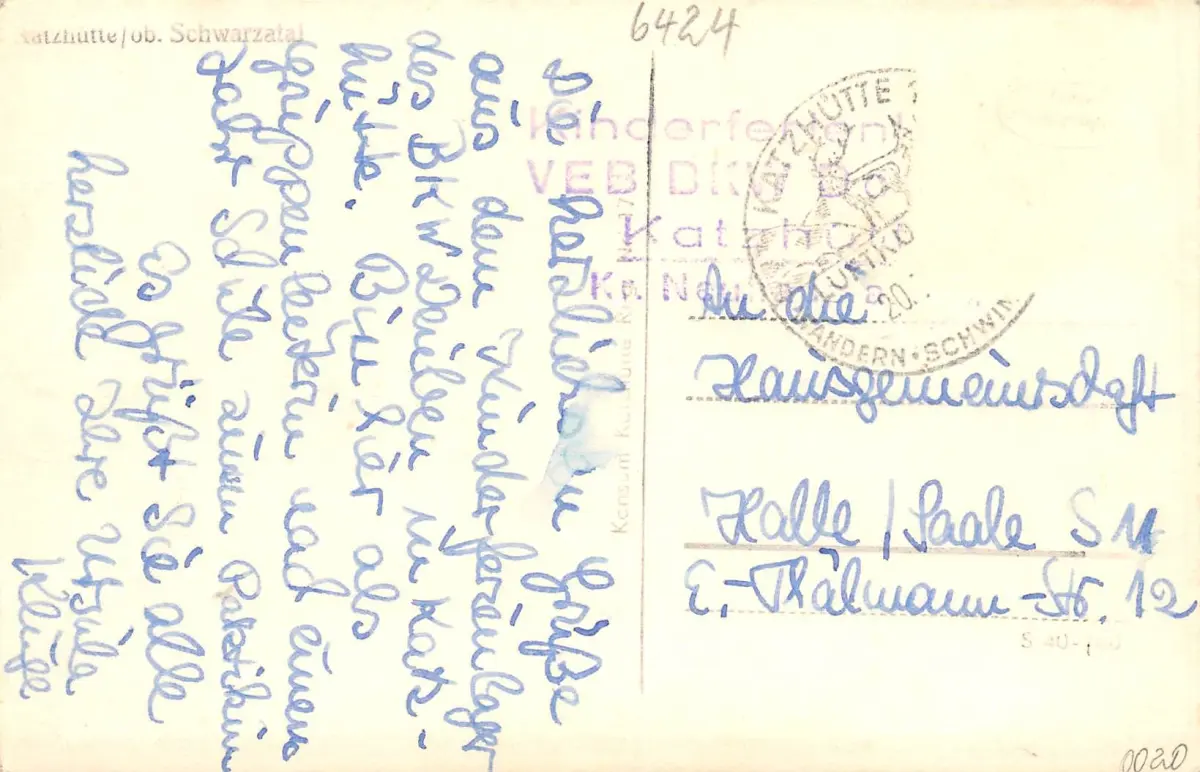 Katzhütte/ob. Schwarzatal
6424
Die herzlichsten Grüße
aus dem Kinderferienlager
des BKW Deuben in Katz-
hütte. Bin hier als
Gruppenleiterin nach einem
Jahr Schule zum Praktikum
Es grüßt Sie alle
herzlich Ihre Ursula
Kluge
Kinderferienl
VEB
Katzhü
Kr. Neu
KATZHÜTTE
WANDERN · SCHWIM
20.
Konsum
An die
Hausgemeinschaft
Halle/Saale S 11
E.-Thälmann-Str. 12
0020